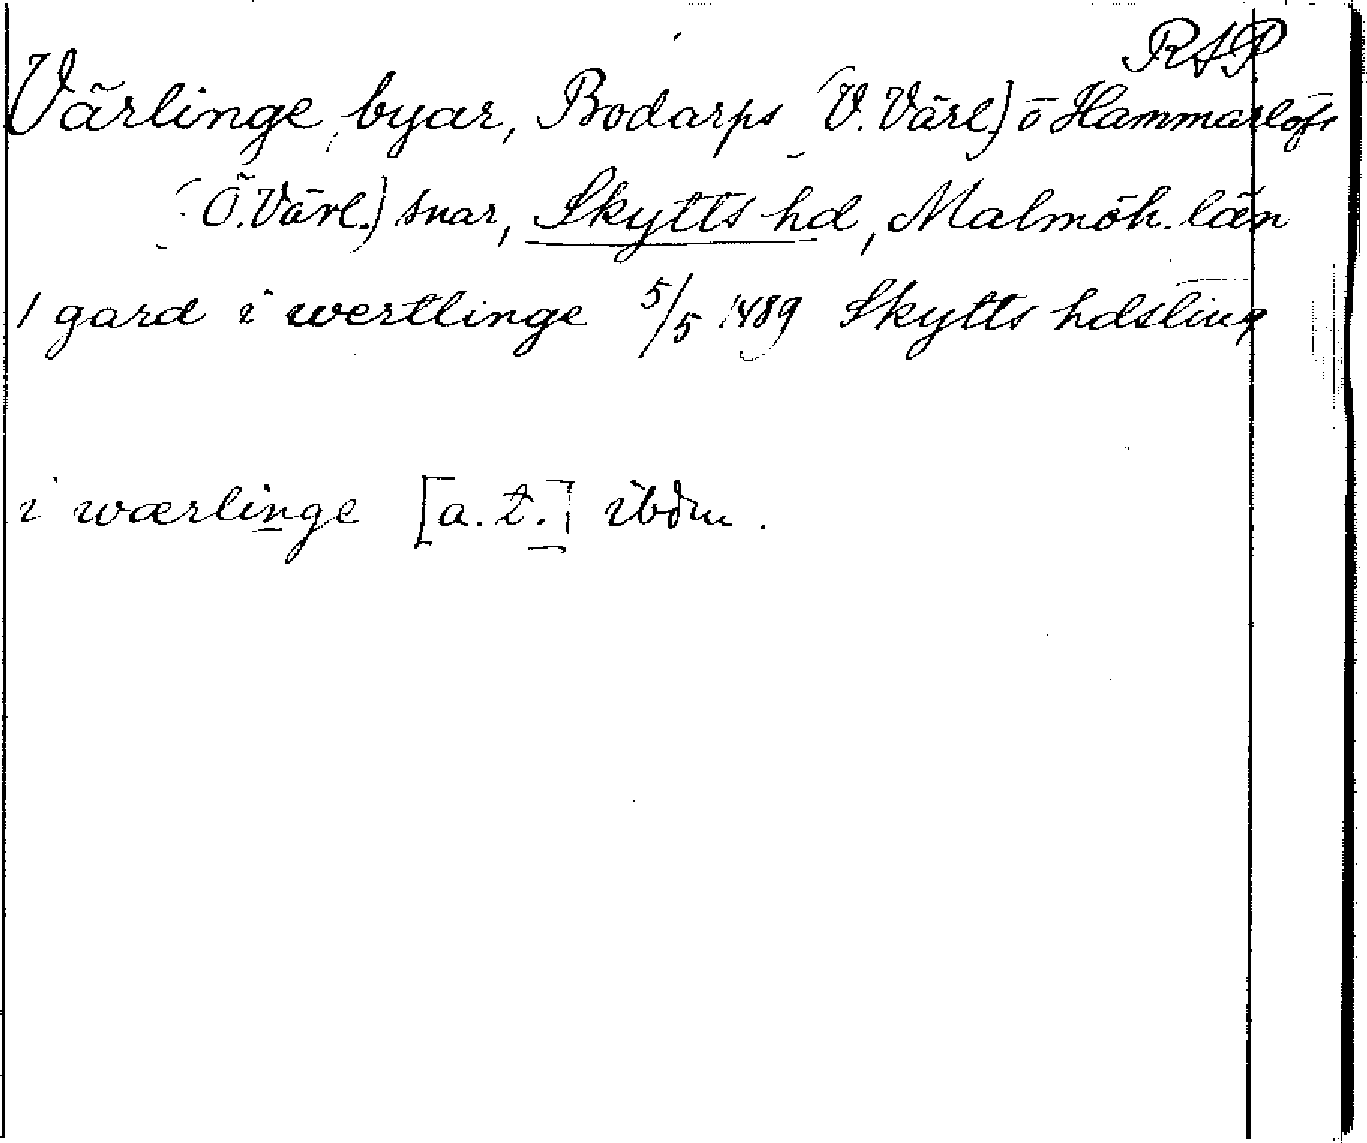 RAP
Värlinge byar, Bodarps (V. Värl.) o Hammarlövs
(Ö. Värl.) snar, Skytts hd, Malmöh. län
1 gard i wertlinge 5/5 1489 Skytts hdsting
i wærlinge [a. t.] ibdm.